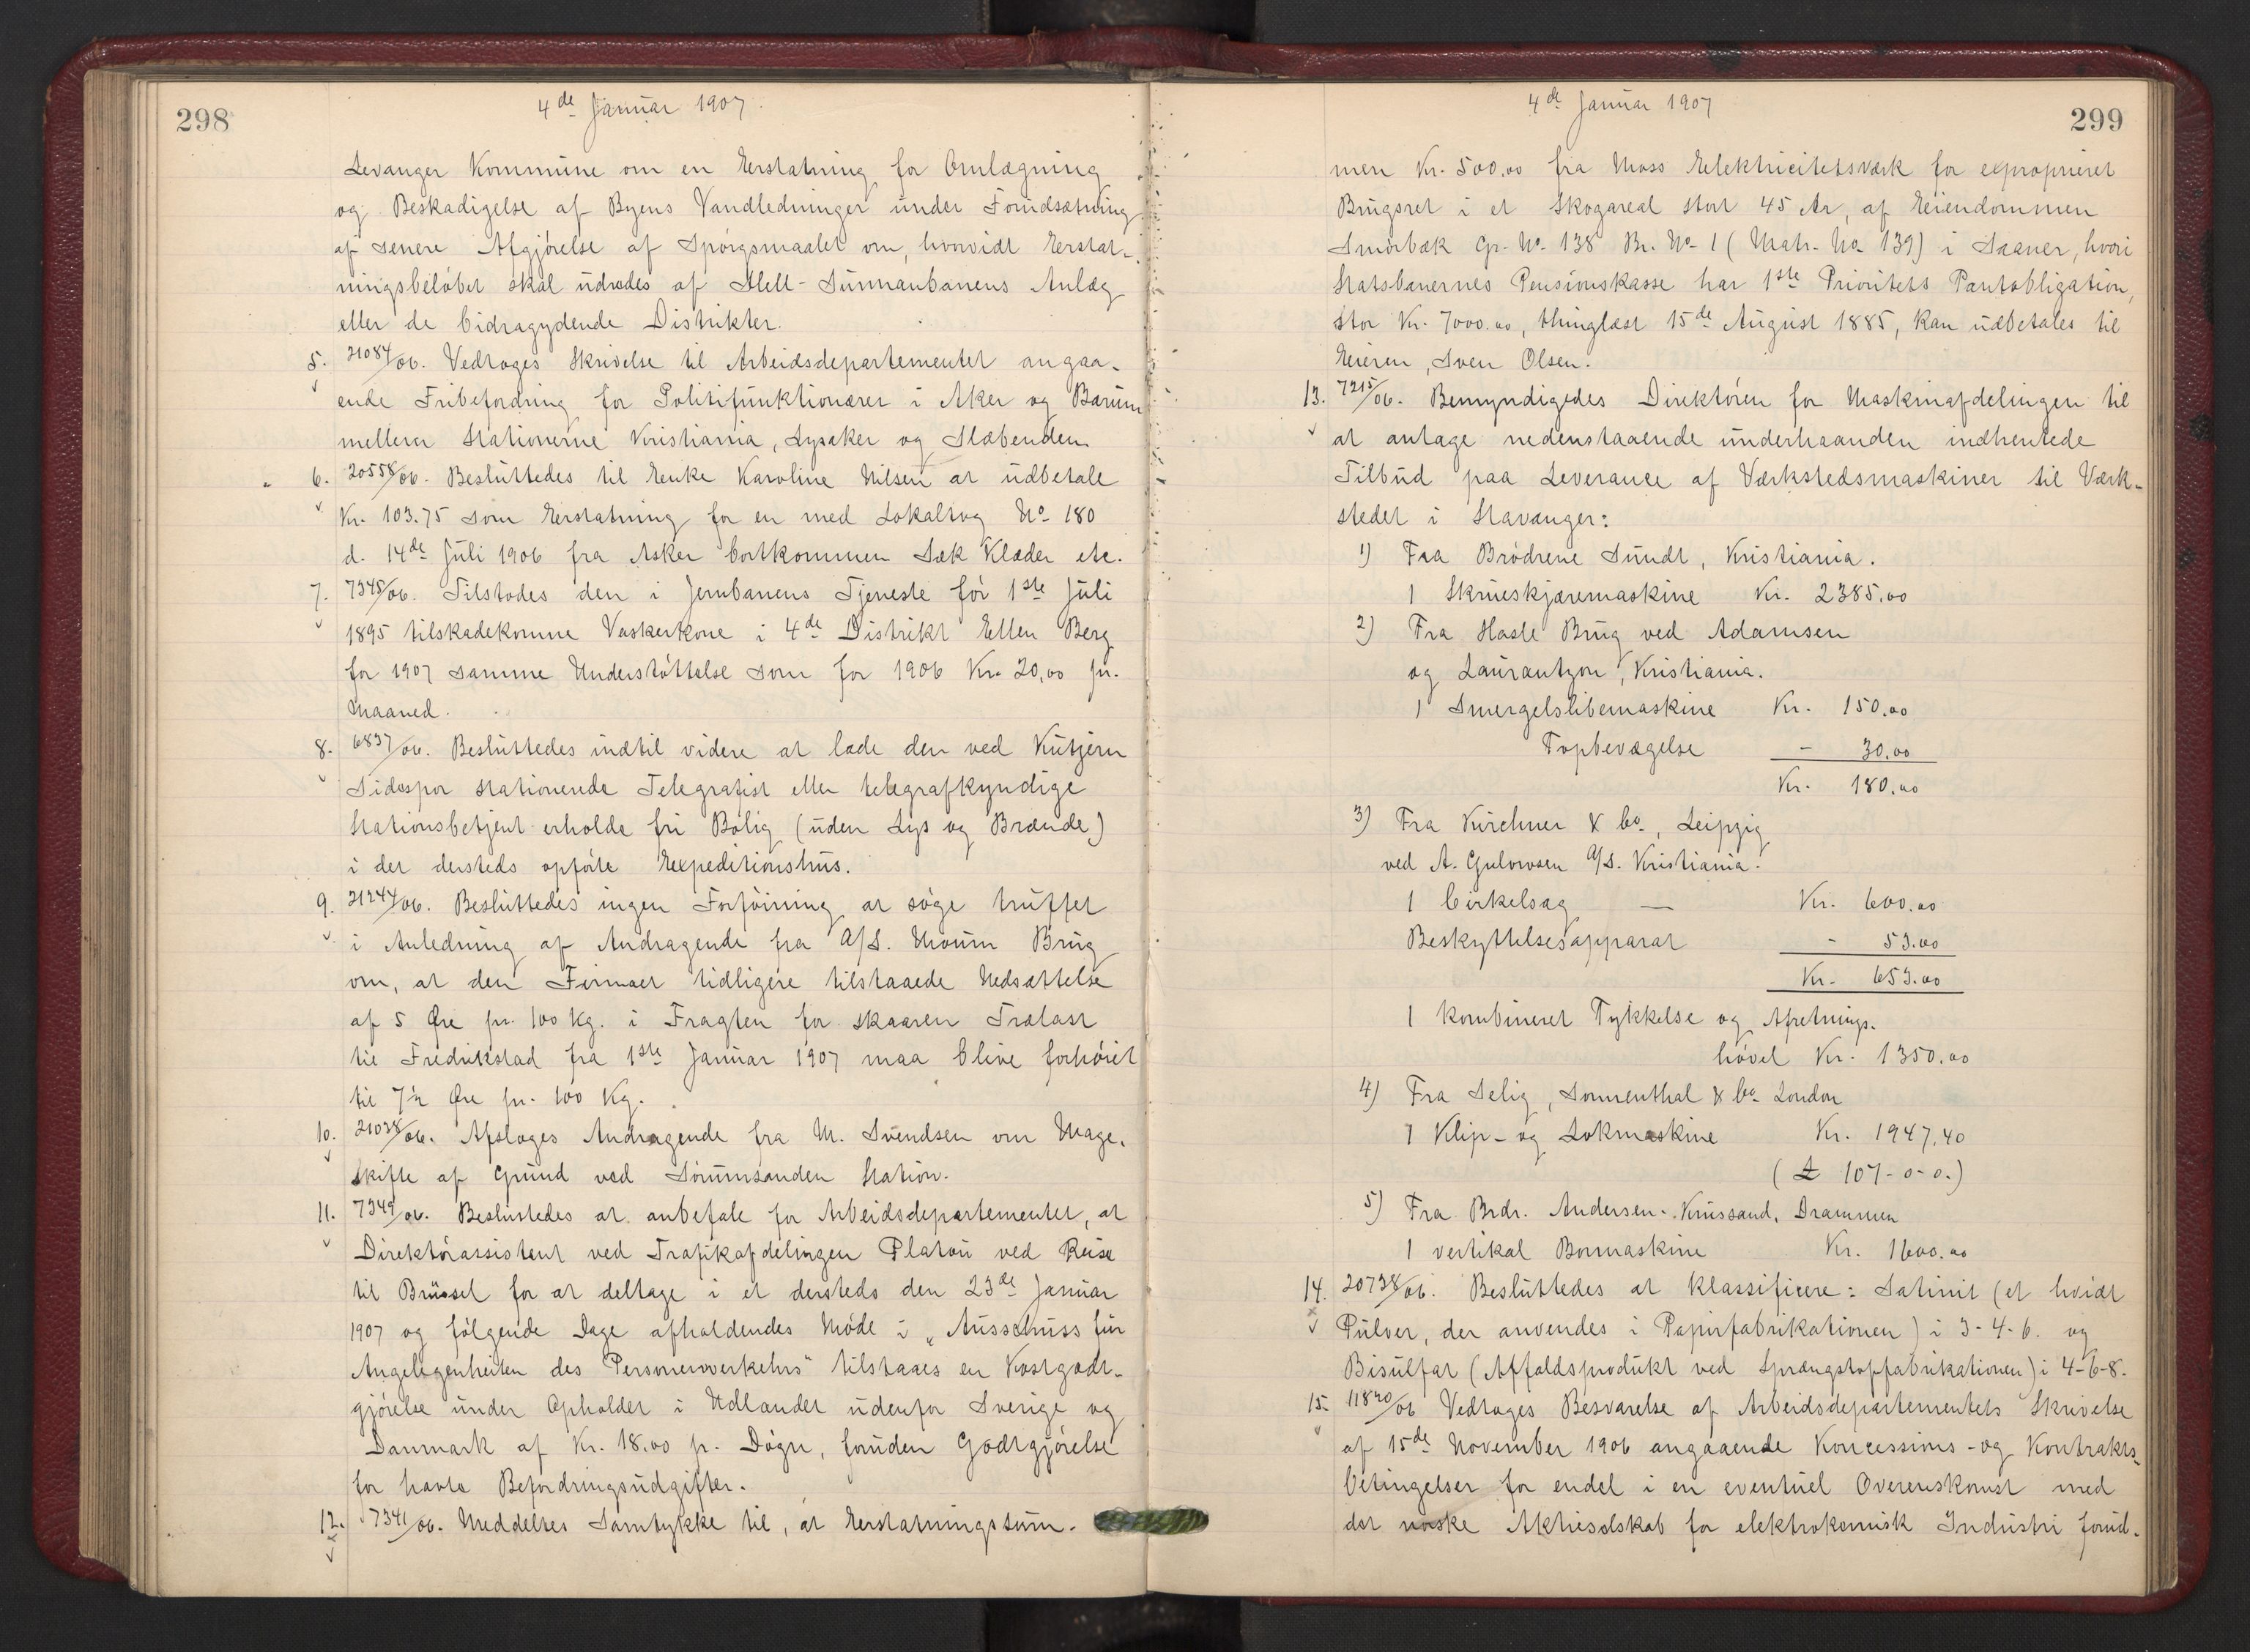 298
4de Januar 1907.
Levanger Kommune om en Erstatning for Omlægning
og Beskadigelse af Byens Vandledninger under Forudsætning
af senere Afgjørelse af Spørgsmaalet om, hvorvidt Erstat-
ningsbeløbet skal udredes af Hell-Sunnanbanens Anlæg
eller de bidragydende Distrikter.
5. 21084/06. Vedtoges Skrivelse til Arbeidsdepartementet angaa-
ende Fribefordring for Politifunktionærer i Aker og Bærum
mellem Stationerne Kristiania, Lysaker og Slæbenden
6. 20558/06. Besluttedes til Enke Karoline Nilsen at udbetale
Kr. 103.75 som Erstatning for en med Lokaltog No 180
d. 14de Juli 1906 fra Asker bortkommen Sæk Klæder etc.
7. 7345/06. Tilstodes den i Jernbanens Tjeneste før 1ste Juli
1895 tilskadekomne Vaskerkone i 4de Distrikt Ellen Berg
for 1907 samme Understøttelse som for 1906 Kr. 20,00 pr.
Maaned.
8. 6837/06. Besluttedes indtil videre at lade den ved Kutjern
Sidespor stationerede Telegrafist eller telegrafkyndige
Stationsbetjent erholde fri Bolig (uden Lys og Brænde)
i det dersteds opførte Expeditionshus.
9. 21244/06. Besluttedes ingen Forføining at søge truffet
i Anledning af Andragende fra A/S. Moum Brug
om, at den Firmaet tidligere tilstaaede Nedsættelse
af 5 Øre pr. 100 Kg. i Fragten for skaaren Trælast
til Fredrikstad fra 1ste Januar 1907 maa blive forhøiet
til 7½ Øre pr. 100 Kg.
10. 21028/06. Afsloges Andragende fra M. Svendsen om Mage-
skifte af Grund ved Sørumsanden Station.
11. 7349/06. Besluttedes at anbefale for Arbeidsdepartementet, at
Direktørassistent ved Trafikafdelingen Platou ved Reise
til Brüssel for at deltage i et dersteds den 23de Januar
1907 og følgende Dage afholdendes Møde i „Ausschuss für
Angelegenheiten des Personenverkehrs" tilstaaes en Kostgodt-
gjørelse under Opholdet i Udlandet udenfor Sverige og
Danmark af Kr. 18.00 pr. Døgn, foruden Godtgjørelse
for havte Befordringsudgifter.
12. 7341/06. Meddeltes Samtykke til, at Erstatningssum-
299
4de Januar 1907
men Kr. 500.00 fra Moss Elektricitetsværk for exproprieret
Brugsret i et Skogareal stort 45 Ar, af Eiendommen
Smørbæk Gr. No. 138 Br. No 1 (Matr. No 139) i Saaner, hvori
Statsbanernes Pensionskasse har 1ste Prioritets Pantobligation,
stor Kr. 7000.00, thinglæst 15de August 1885, kan udbetales til
Eieren, Sven Olsen.
13. 7215/06. Bemyndigedes Direktøren for Maskinafdelingen til
at antage nedenstaaende underhaanden indhentede
Tilbud paa Leverance af Værkstedsmaskiner til Værk-
stedet i Stavanger:
1) Fra Brødrene Sundt, Kristiania.
1 Skrueskjæremaskine Kr. 2385.00
2) Fra Hasle Brug ved Adamsen
og Laurantzon, Kristiania.
1 Smergelslibemaskine Kr. 150.00
Topbevægelse - 30.00
Kr. 180.00
3) Fra Kirchner & Co., Leipzig
ved A. Gulowsen A/S. Kristiania.
1 Cirkelsag — Kr. 600.00
Beskyttelsesapparat - 53.00
Kr. 653.00
1 kombineret Tykkelse og Afretnings-
høvel Kr. 1350.00
4) Fra Selig, Sonnenthal & Co. London
1 Klip- og Lokmaskine Kr. 1947.40
(£ 107-0-0.)
5) Fra Brdr. Andersen - Knussand, Drammen
1 vertikal Bormaskine Kr. 1600.00
14. 20738/06. Besluttedes at klassificere: Satinit (et hvidt
Pulver, der anvendes i Papirfabrikationen) i 3-4-6. og
Bisulfat (Affaldsprodukt ved Sprængstoffabrikationen) i 4-6-8.
15. 11840/06 Vedtoges Besvarelse af Arbeidsdepartementets Skrivelse
af 15de November 1906 angaaende Koncessions- og Kontrakts-
betingelser for endel i en eventuel Overenskomst med
det norske Aktieselskab for elektrokemisk Industri forud-